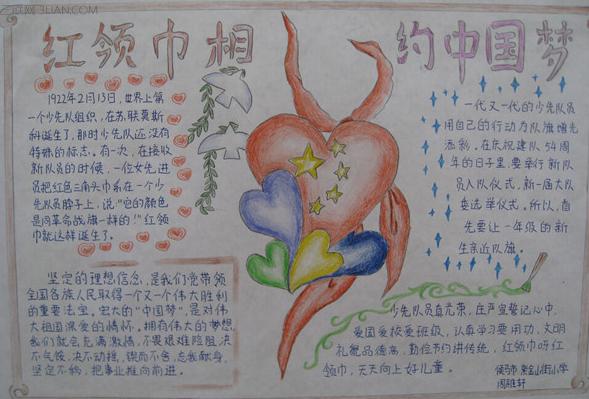 红领巾相约中国梦
1922年2月13日,世界上第
一个少先队组织,在苏联莫斯
科诞生了,那时少先队还没有
特殊的标志。有一次,在接收
新队员的时候,一位女先进
员把红色三角头巾系在一个少
先队员脖子上,说:“它的颜色
是同革命战旗一样的!”红领
巾就这样诞生了。
一代又一代的少先队员
用自己的行动为队旗增光
添彩,在庆祝建队54周
年的日子里,要举行新队
员入队仪式,新一届大队
委选举仪式。所以,首
先要让一年级的新
生亲近队旗。
坚定的理想信念,是我们党带领
全国各族人民取得一个又一个伟大胜利
的重要法宝。宏大的“中国梦”,是对伟
大祖国深爱的情怀。拥有伟大的梦想,
我们就会充满激情,不畏艰难险阻,决
不气馁,决不动摇,锲而不舍,忘我献身,
坚定不移,把事业推向前进。
少先队员真光荣,庄严宣誓记心中,
爱国爱校爱班级,认真学习要用功,文明
礼貌品德高,勤俭节约讲传统,红领巾呀红
领巾,天天向上好儿童。
侯马市 紫金山街小学
周雅轩